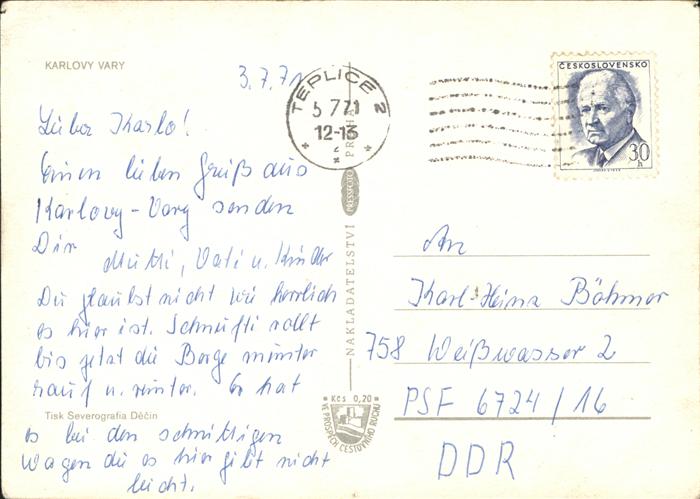 KARLOVY VARY
3.7.71
Lieber Karlo!
Einen lieben Gruß aus
Karlovy-Vary senden
Dir Mutti, Vati u. Kinder
Du glaubst nicht wie herrlich
es hier ist. Schnufti rollt
bis jetzt die Berge munter
rauf u. runter. Er hat
Tisk Severografia Děčín
es bei den schnittigen
Wagen die es hier gibt nicht
leicht.
TEPLICE 2
5 7 71
12-13
c
NAKLADATELSTVÍ PRESSFOTO PRAHA
Kčs 0,20
VE PROSPĚCH CESTOVNÍHO RUCHU
ČESKOSLOVENSKO
30 h
An
Karl-Heinz Böhmer
758 Weißwasser 2
PSF 6724/16
DDR